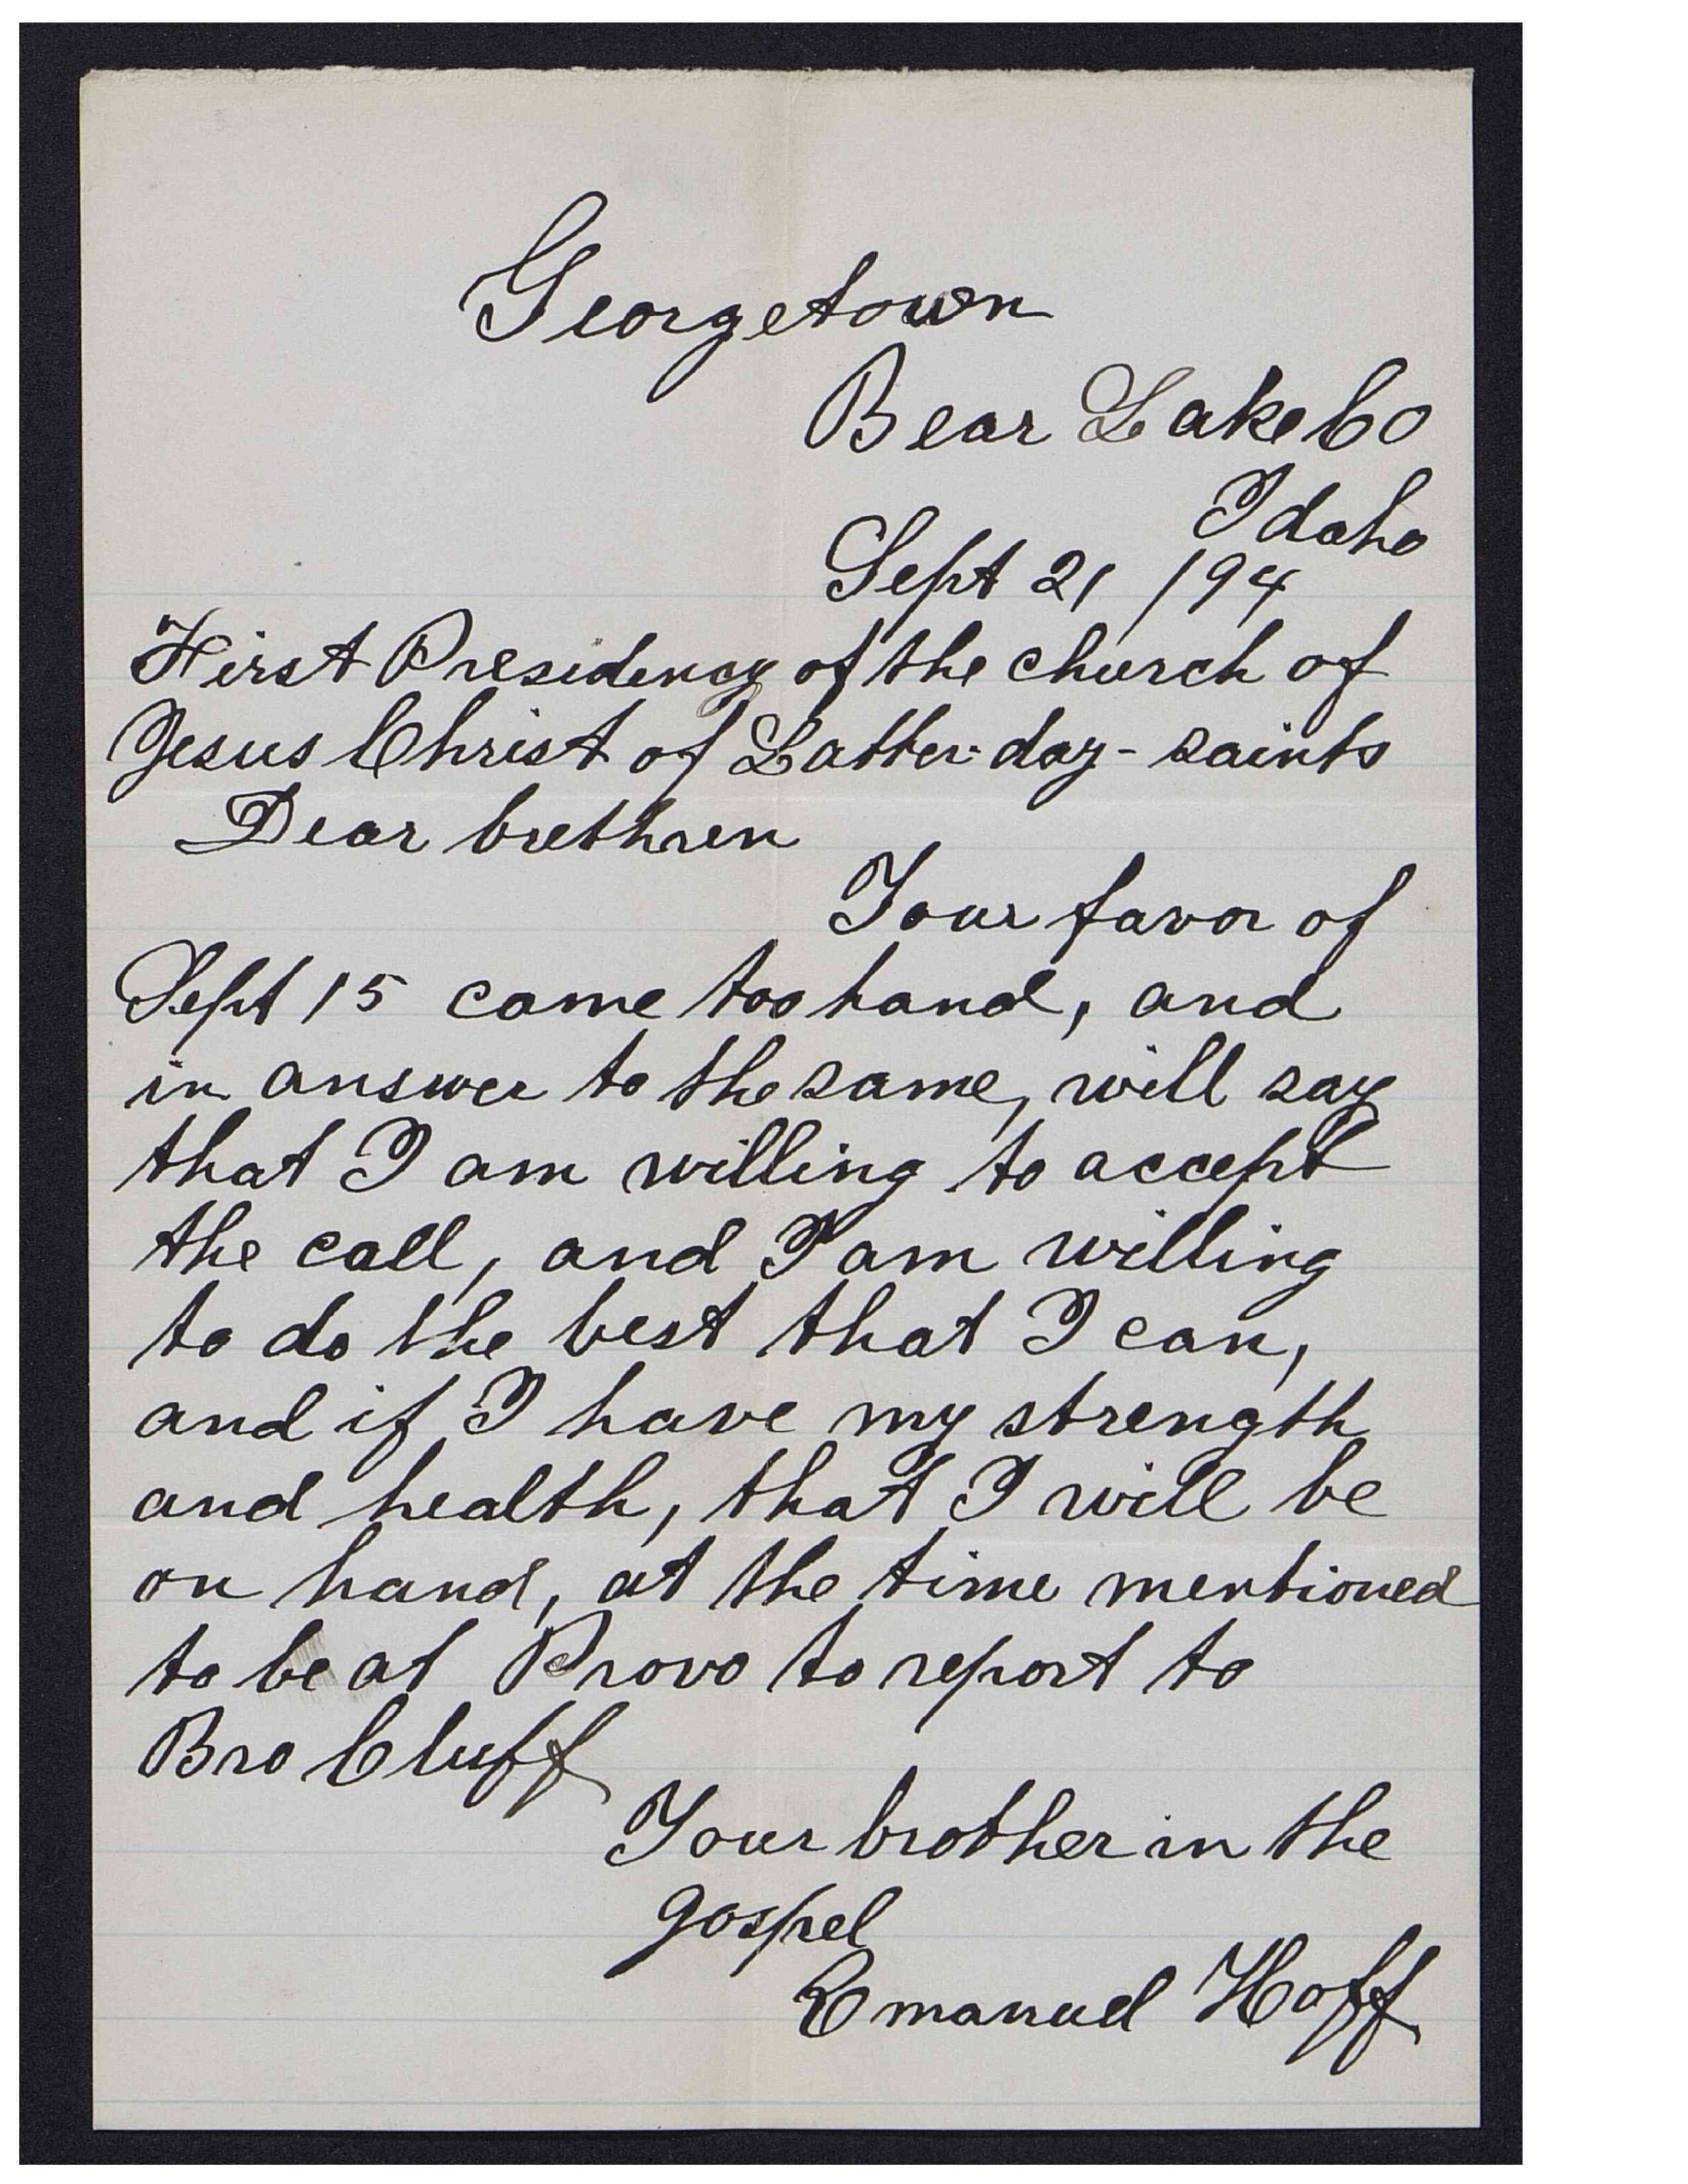 Georgetown
Bear Lake Co
Idaho
Sept 21 /94
First Presidency of the church of
Jesus Christ of Latter-day-saints
Dear brethren
Your favor of
Sept 15 came too hand, and
in answer to the same, will say
that I am willing to accept
the call, and I am willing
to do the best that I can,
and if I have my strength
and health, that I will be
on hand, at the time mentioned
to be at Provo to report to
Bro Cluff
Your brother in the
gospel
Emanuel Hoff